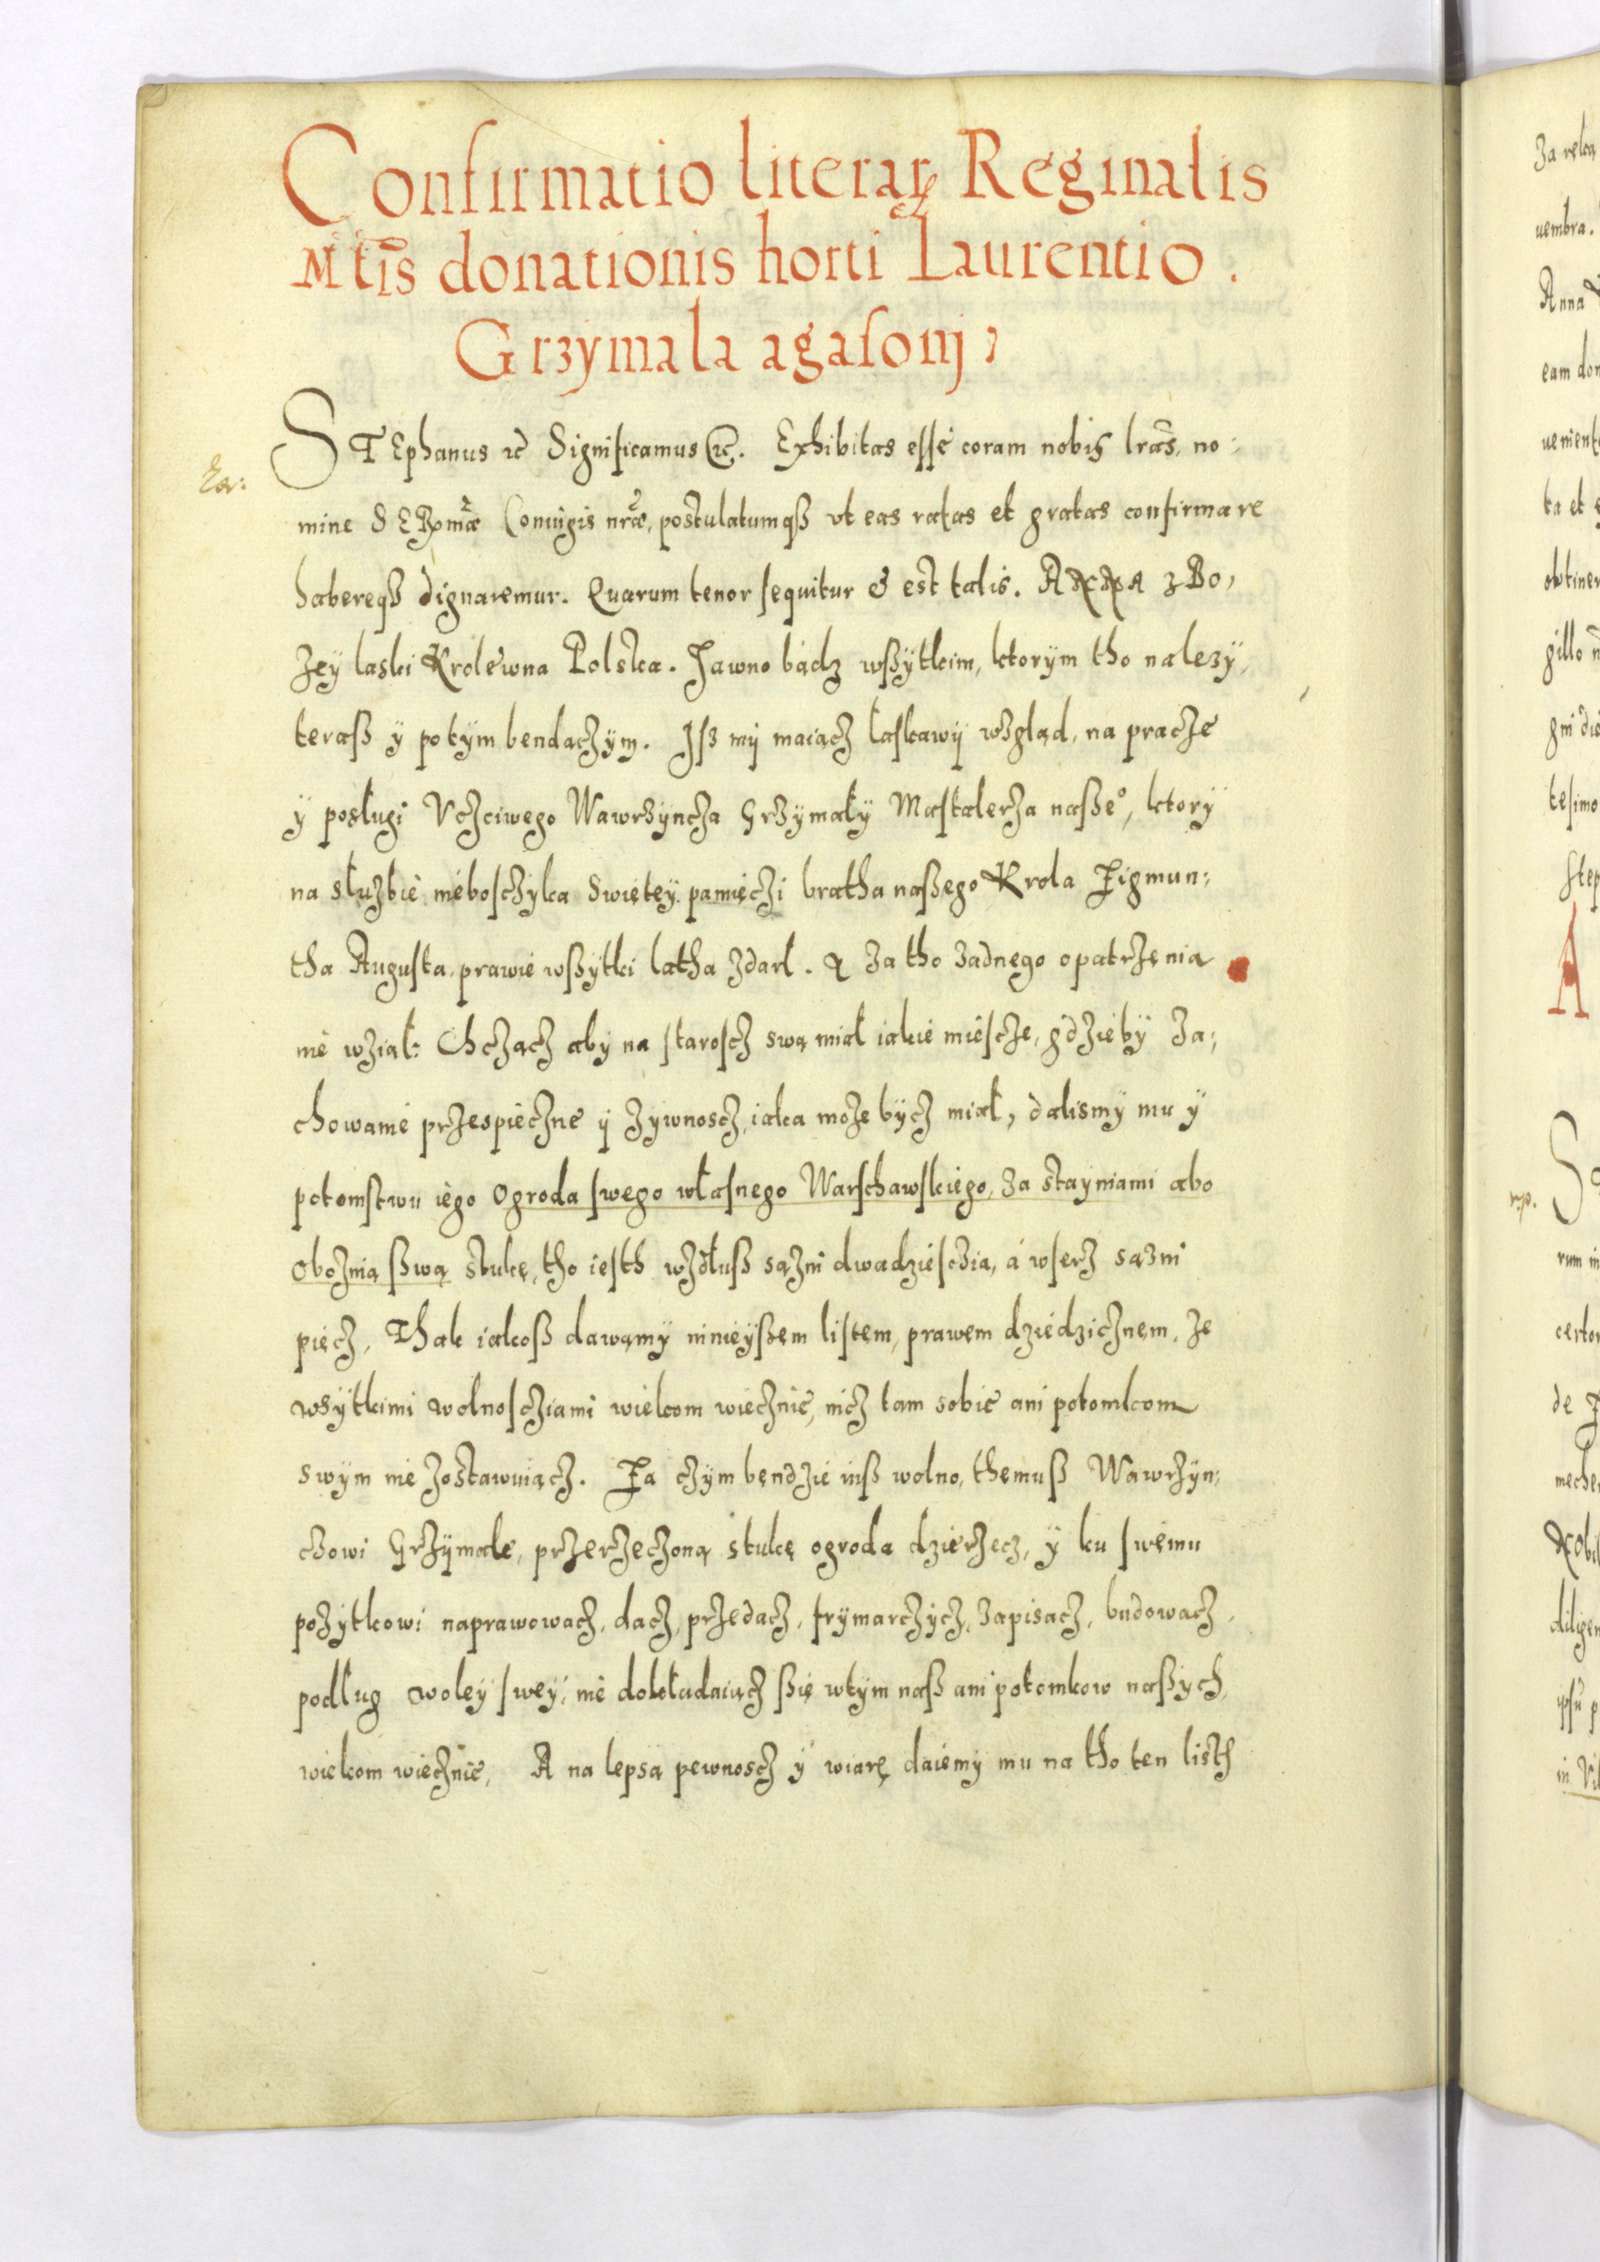 Confirmatio literarꝝ Reginalis
Mtis donationis horti Laurentio.
Grzymala agasoni,
STEphanus ꝛc̄ Significamus ꝛc̄. Exhibitas esse coram nobis lrās, no:
mine SERomæ Coniugis nræ, postulatumqꝫ vt eas ratas et gratas confirmare
habereqꝫ dignaremur. Quarum tenor sequitur & est talis. ANNA z Bo,
zey laski Krolewna Polska. Jawno bądz wßytkim, ktorym tho nalezy,
teraß y potym bendaczym. Isz my maiącz łaskawy wzgląd, na pracze
y posługi Vcziwego Wawrzyncza Grzymały Mastalerza naße°, ktory
na służbie nieboszczyka Swiętey pamięczi bratha naßego Krola Zigmun:
tha Augusta, prawie wßytki latha zdarł. A za tho zadnego opatrzenia
nie wział: Chcząncz aby na starosc swą miał iakie miescze, gdzieby za:
chowanie przespieczne y zywnoscz, iaka moze bycz miał, dalismy mu y
potomstwu iego Ogroda swego własnego Warschawskiego, za stayniami abo
Oboznią ßwą stukę, tho iesth wzdłuß sązni dwadziesczia, a wserz sązni
pięcz, Thak iakoß dawamy ninieyßem listem, prawem dziedzicznem, ze
wsytkimi wolnosciami wiekom wiecznie, nicz tam sobie ani potomkom
swym nie zostawuiącz. Za czym bendzie iuß wolno, themuß Wawrzyn:
czowi Grzymale, przerzeczoną stukę ogroda dzierzecz, y ku swemu
pozytkowi naprawowacz, dacz, przedacz, frymarczycz, zapisacz, budowacz,
podług woley swey, nie dokładaiącz ßię wtym naß ani potomkow naßych,
wiekom wiecznie, A na lepsą pewnoscz y wiarę daiemy mu na tho ten listh